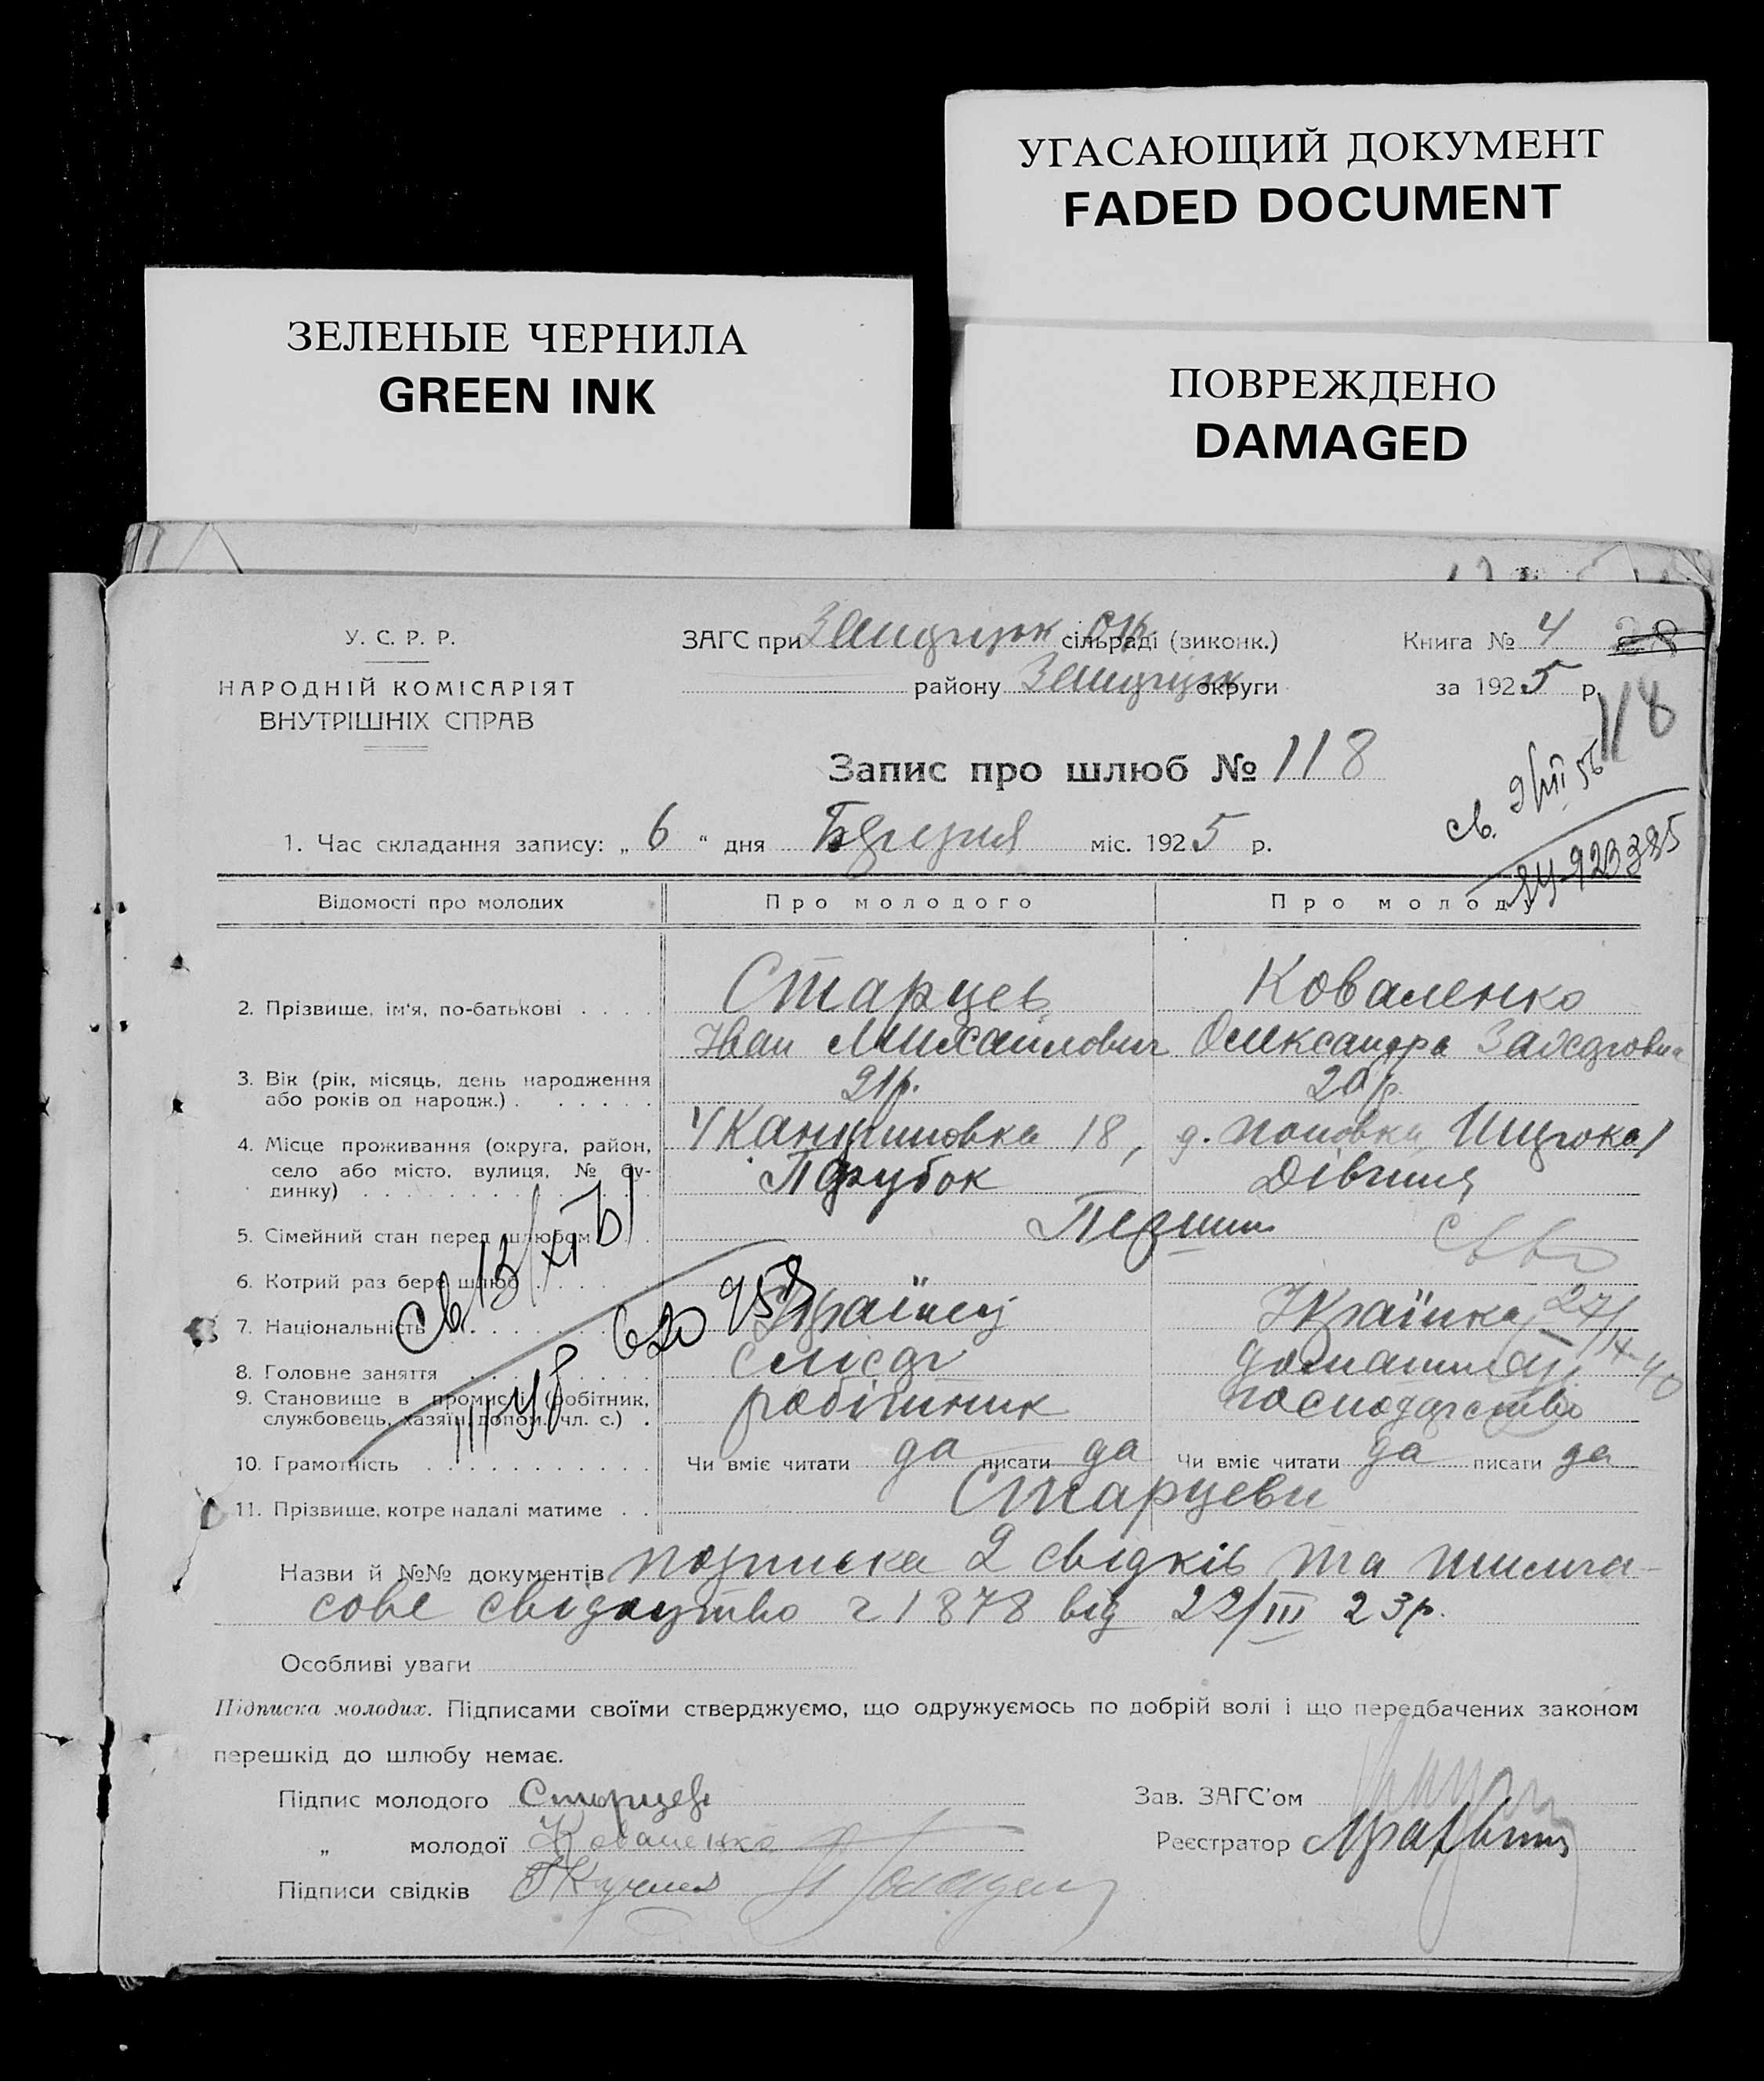 УГАСАЮЩИЙ ДОКУМЕНТ
FADED DOCUMENT
ЗЕЛЕНЫЕ ЧЕРНИЛА
GREEN INK
ПОВРЕЖДЕНО
DAMAGED
У. С. Р. Р.
НАРОДНІЙ КОМІСАРІЯТ
ВНУТРІШНІХ СПРАВ
ЗАГС при сільраді (виконк.)
району округи
Книга № 4 28
за 1925 р.
118
Запис про шлюб № 118
1. Час складання запису: „ 6 “ дня міс. 1925 р.
Відомості про молодих Про молодого Про молоду
2. Прізвище, ім'я, по-батькові Старцев Коваленко
Иван Михайлович Олександра
3. Вік (рік, місяць, день народження або років од народж.) 21 р. 20 р.
4. Місце проживання (округа, район, село або місто, вулиця, № будинку) 18,
Парубок Дівчина
5. Сімейний стан перед шлюбом
6. Котрий раз бере шлюб
7. Національність Українец Українка
8. Головне заняття слюсар домашнє
9. Становище в промислі (робітник, службовець, хазяїн, допом. чл. с.) робітник господарство
10. Грамотність Чи вміє читати да писати да Чи вміє читати да писати да
11. Прізвище, котре надалі матиме Старцеви
Назви й №№ документів подписка 2 свідків та тимча-
сове свідоцтво 1878 від 22/III 23 р.
Особливі уваги
Підписка молодих. Підписами своїми стверджуємо, що одружуємось по добрій волі і що передбачених законом
перешкід до шлюбу немає.
Підпис молодого Старцев
Зав. ЗАГС'ом
„ молодої Коваленко
Реєстратор
Підписи свідків